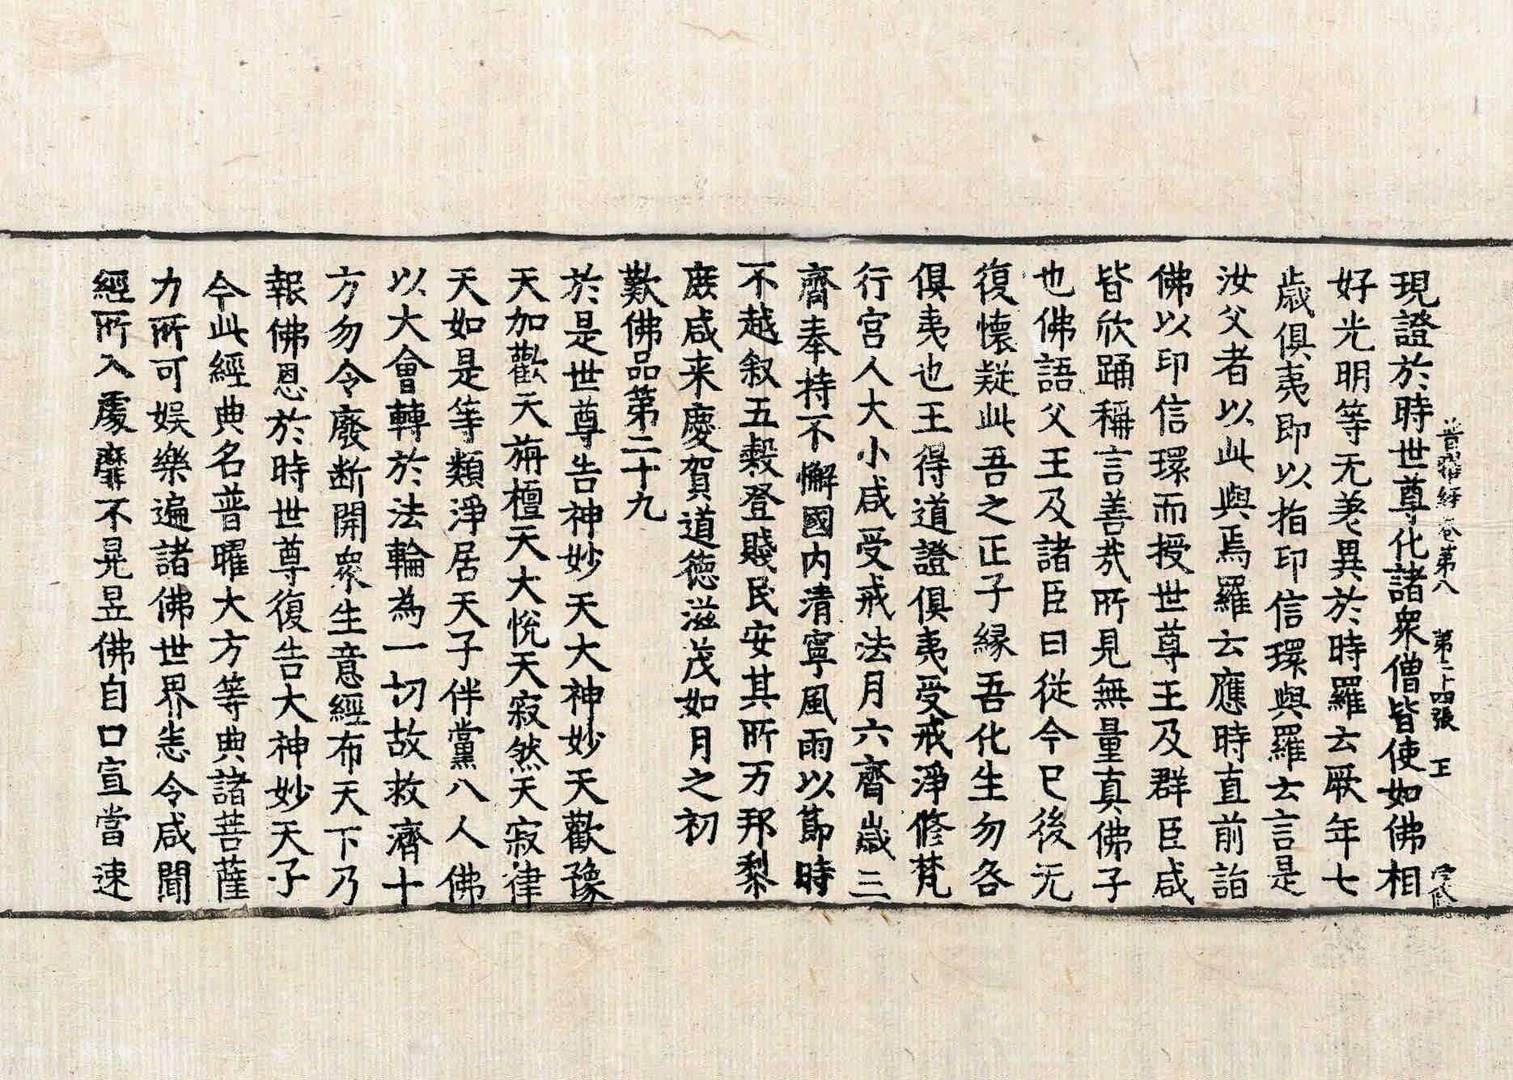 普曜經卷第八　第二十四張　王
現證於時世尊化諸衆僧皆使如佛相
好光明等无差異於時羅云厥年七
歲俱夷即以指印信環與羅云言是
汝父者以此與焉羅云應時直前詣
佛以印信環而授世尊王及群臣咸
皆欣踊稱言善哉所見無量真佛子
也佛語父王及諸臣曰從今已後无
復懷疑此吾之正子縁吾化生勿各
俱夷也王得道證俱夷受戒淨修梵
行宮人大小咸受戒法月六齋歲三
齋奉持不懈國内清寧風雨以節時
不越叙五穀登賤民安其所万邦黎
庶咸来慶賀道德滋茂如月之初
歎佛品第二十九
於是世尊告神妙天大神妙天歡豫
天加歡天旃檀天大悅天寂然天寂律
天如是等類淨居天子伴黨八人佛
以大會轉於法輪為一切故救濟十
方勿令廢断開衆生意經布天下乃
報佛恩於時世尊復告大神妙天子
今此經典名普曜大方等典諸菩薩
力所可娯樂遍諸佛世界悉令咸聞
經所入處靡不晃昱佛自口宣當速